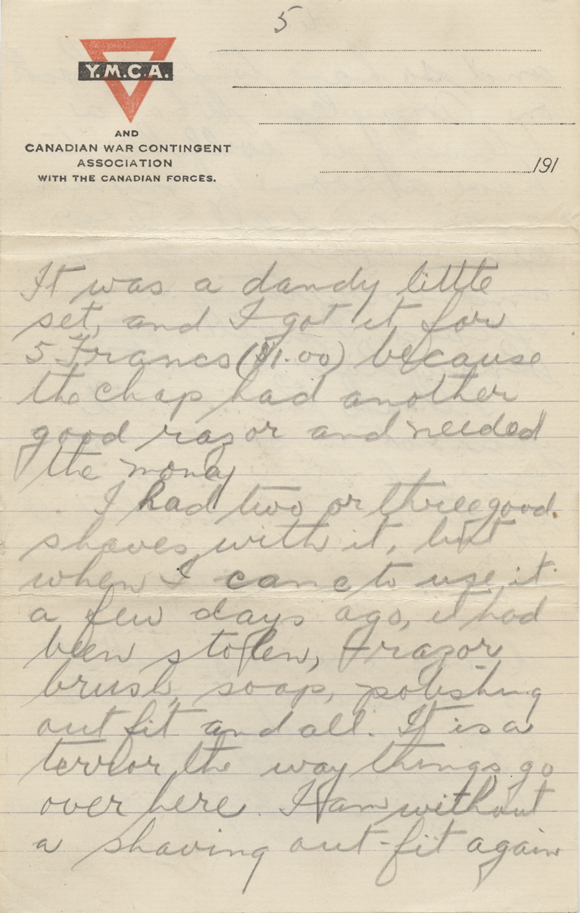 5
Y.M.C.A.
AND
CANADIAN WAR CONTINGENT
ASSOCIATION
WITH THE CANADIAN FORCES.
191
It was a dandy little
set, and I got it for
5 Francs ($1.00) because
the chap had another
good razor and needed
the money
I had two or three good
shaves with it, but
when I came to use it
a few days ago, it had
been stolen, razor
brush, soap, polishing
outfit and all. It is a
terror the way things go
over here. I am without
a shaving out-fit again